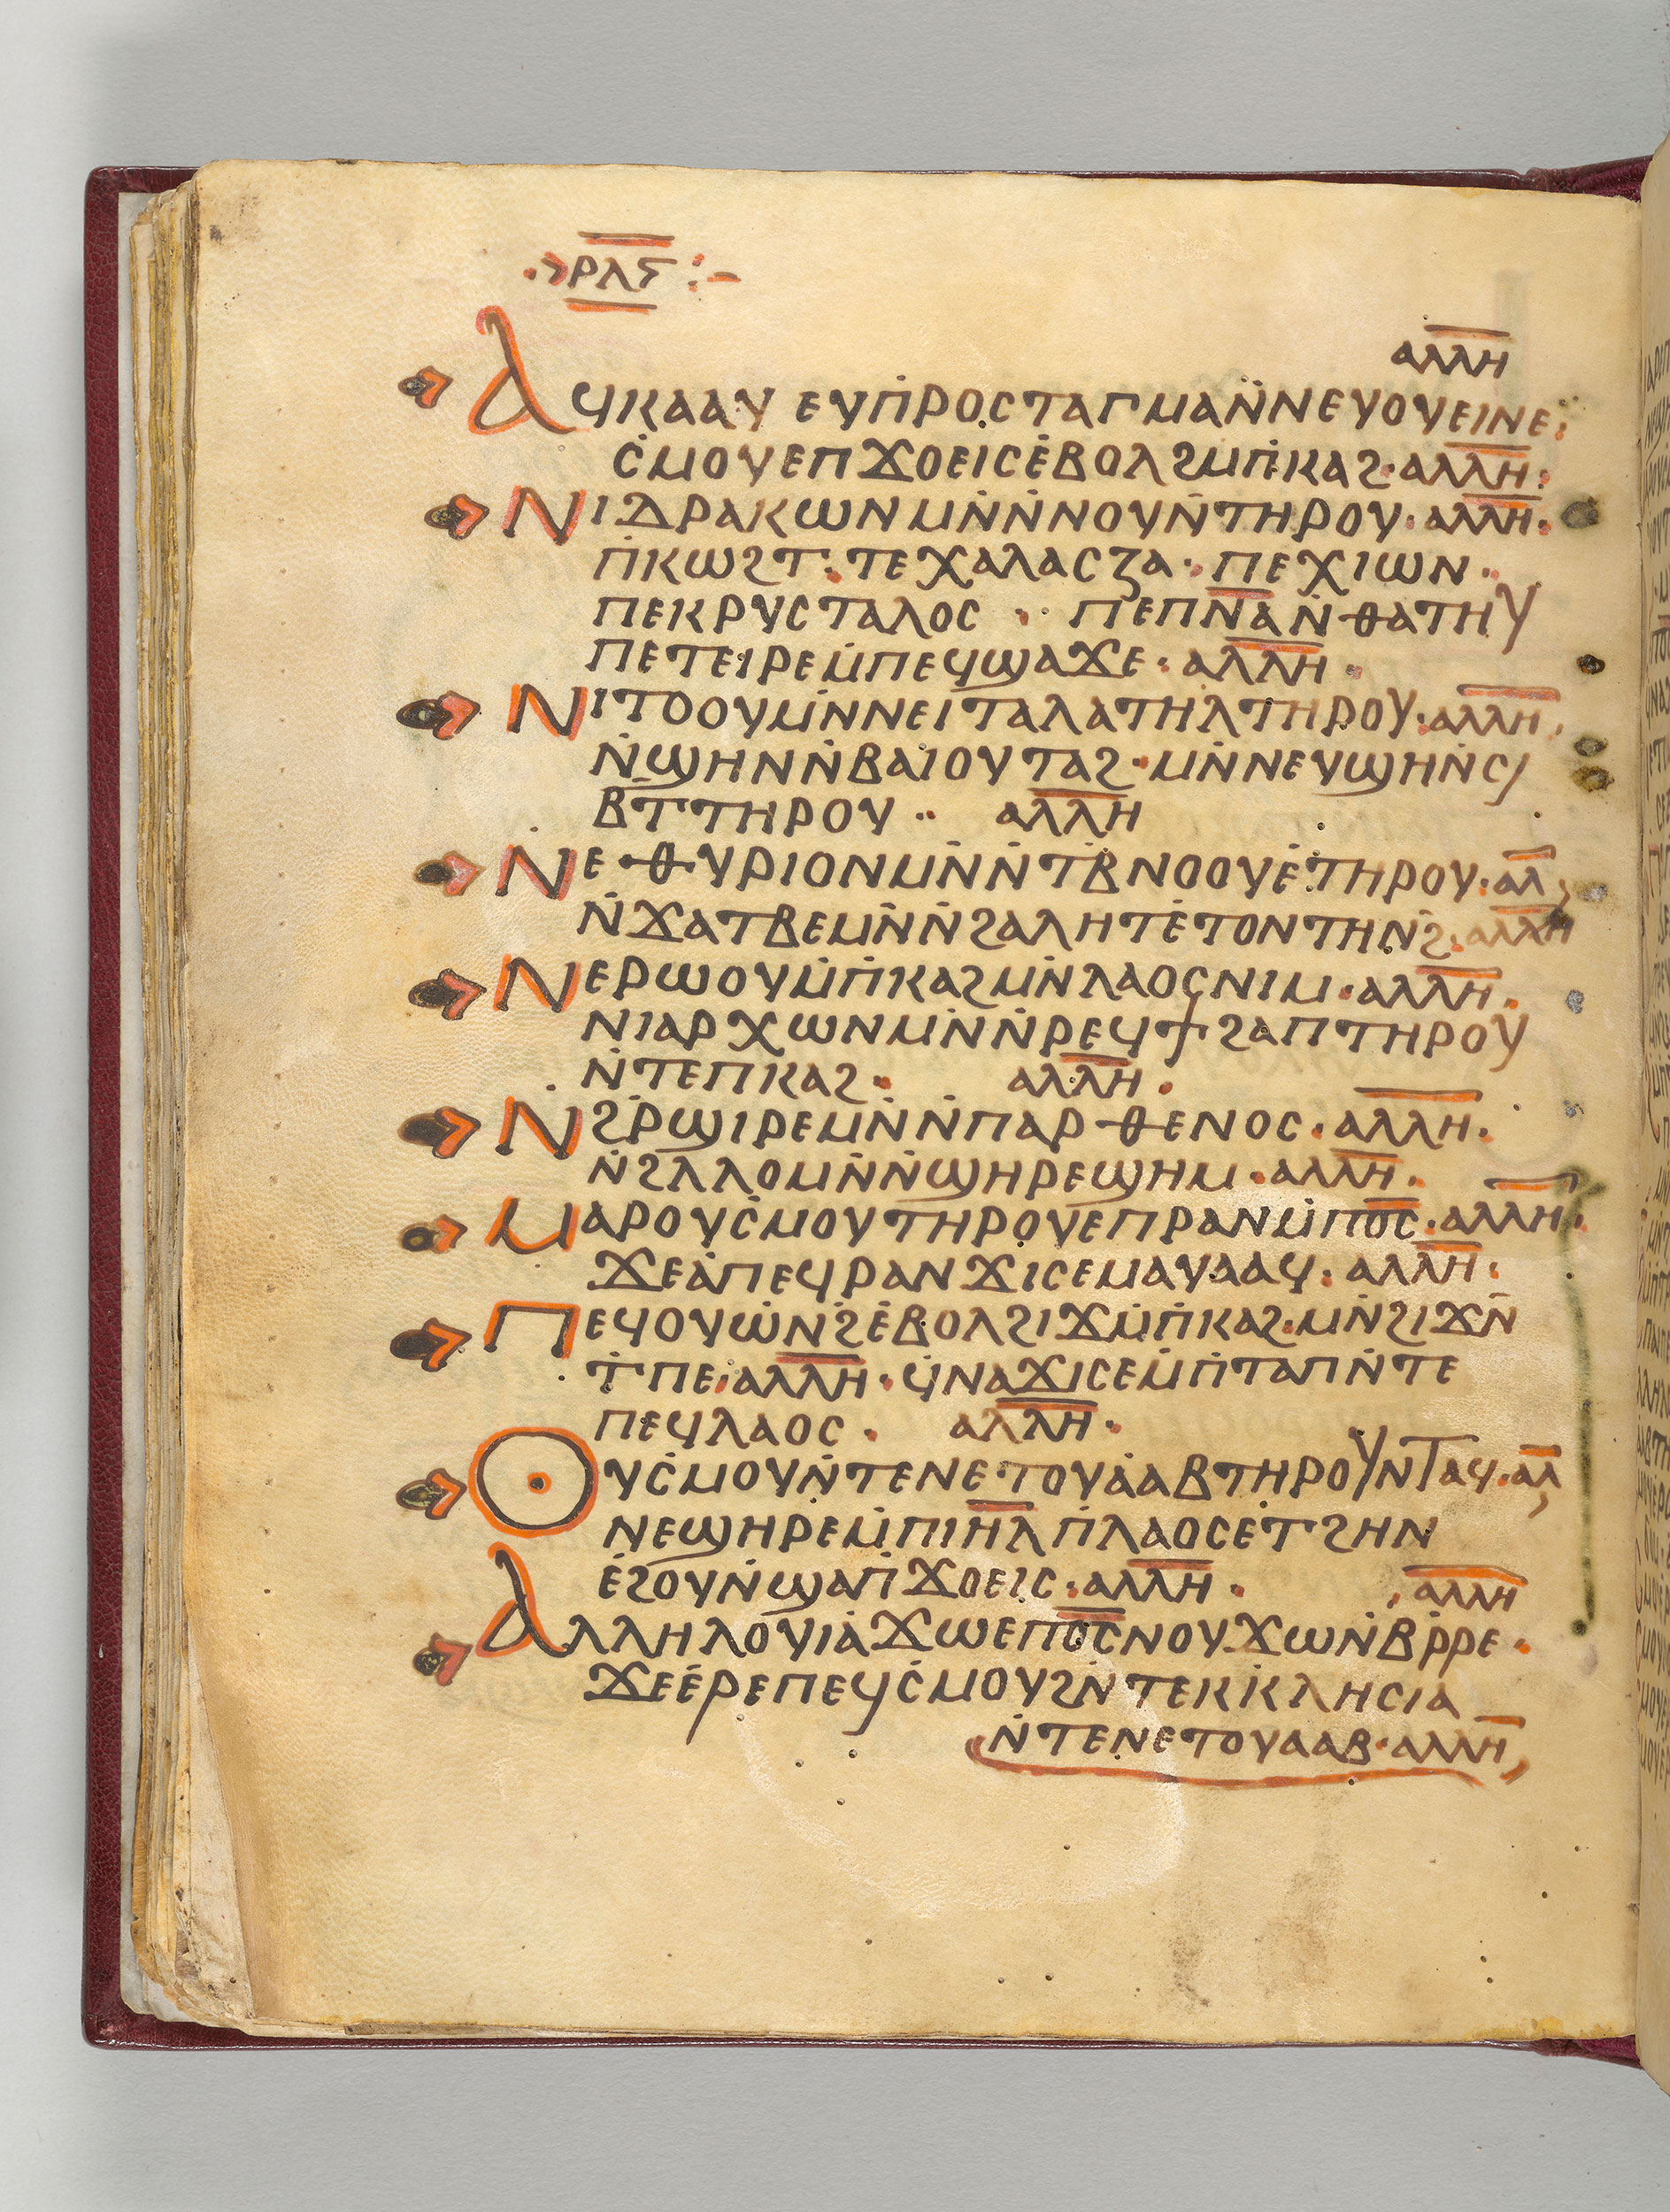 ⲣⲗⲋ
ⲁⲗⲗⲏ
ⲁϥⲕⲁⲁⲩ ⲉⲩⲡ̇ⲣⲟⲥⲧⲁⲅⲙⲁⲛ̇ⲛⲉⲩⲟⲩⲉⲓⲛⲉ:
ⲥ̇ⲙⲟⲩⲉⲡϫⲟⲉⲓⲥⲉ̇ⲃⲟⲗϩⲙⲡ̇ⲕⲁϩ·ⲁⲗⲗⲏ:
ⲛⲓⲇⲣⲁⲕⲱⲛⲙⲛ̇ⲛ̇ⲛⲟⲩⲛ̇ⲧⲏⲣⲟⲩ·ⲁⲗⲗⲏ·
ⲡ̇ⲕⲱϩⲧ·ⲧⲉⲭⲁⲗⲁⲥⲍⲁ·ⲡⲉⲭⲓⲱⲛ·
ⲡⲉⲕⲣⲩⲥⲧⲁⲗⲟⲥ · ⲡⲉⲡⲛ̅ⲁ̅ⲛ̇ⲑⲁⲧⲏⲩ
ⲡⲉⲧⲉⲓⲣⲉⲙ̇ⲡⲉϥϣⲁϫⲉ·ⲁⲗⲗⲏ·
ⲛⲓⲧⲟⲟⲩⲙⲛ̇ⲛⲉⲓⲧⲁⲗⲁⲧⲏⲗⲧⲏⲣⲟⲩ·ⲁⲗⲗⲏ
ⲛ̇ϣⲏⲛⲛ̇ⲃⲁⲓⲟⲩⲧⲁϩ·ⲙⲛ̇ⲛⲉⲩϣⲏⲛ̇ⲥⲓ
ⲃⲧⲧⲏⲣⲟⲩ·· ⲁⲗⲗⲏ
ⲛⲉⲑⲩⲣⲓⲟⲛⲙⲛ̇ⲛ̇ⲧⲃ̇ⲛⲟⲟⲩⲉ̇ⲧⲏⲣⲟⲩ·ⲁⲗ
ⲛ̇ϫⲁⲧⲃⲉⲙⲛ̇ⲛ̇ϩⲁⲗⲏⲧⲉ̇ⲧⲟⲛⲧⲏⲛ̇ϩ·ⲁⲗⲗⲏ
ⲛⲉⲣⲱⲟⲩⲙ̇ⲡ̇ⲕⲁϩⲙⲛ̇ⲗⲁⲟⲥⲛⲓⲙ·ⲁⲗⲗⲏ·
ⲛⲓⲁⲣⲭⲱⲛⲙⲛ̇ⲛ̇ⲣⲉϥϯϩⲁⲡⲧⲏⲣⲟⲩ
ⲛ̇ⲧⲉⲡⲕⲁϩ· ⲁⲗⲗⲏ·
ⲛϩⲣ̇ϣⲓⲣⲉⲙⲛ̇ⲛ̇ⲡⲁⲣⲑⲉⲛⲟⲥ·ⲁⲗⲗⲏ·
ⲛ̇ϩⲗⲗⲟⲙⲛ̇ⲛ̇ϣⲏⲣⲉϣⲏⲙ·ⲁⲗⲗⲏ·
ⲙⲁⲣⲟⲩⲥ̇ⲙⲟⲩⲧⲏⲣⲟⲩⲉⲡⲣⲁⲛⲙ̇ⲡⲟ̅ⲥ̅·ⲁⲗⲗⲏ·
ϫⲉⲁ̇ⲡⲉϥⲣⲁⲛϫⲓⲥⲉⲙⲁⲩⲁⲁϥ·ⲁⲗⲗⲏ·
ⲡⲉϥⲟⲩⲱ̇ⲛ̇ϩⲉ̇ⲃⲟⲗϩⲓϫⲙ̇ⲡ̇ⲕⲁϩ·ⲙⲛ̇ϩⲓϫⲛ̇
ⲧ̇ⲡⲉ·ⲁⲗⲗⲏ·ϥ̇ⲛⲁϫⲓⲥⲉⲙ̇ⲡ̇ⲧⲁⲡⲛ̇ⲧⲉ
ⲡⲉϥⲗⲁⲟⲥ· ⲁⲗⲗⲏ·
ⲟⲩⲥ̇ⲙⲟⲩⲛ̇ⲧⲉⲛⲉⲧⲟⲩⲁ̇ⲁⲃⲧⲏⲣⲟⲩⲛⲧⲁϥ·ⲁⲗ
ⲛⲉϣⲏⲣⲉⲙ̇ⲡⲓ̅ⲏ̅ⲗ̅ⲡ̇ⲗⲁⲟⲥⲉⲧϩⲏⲛ
ⲉ̇ϩⲟⲩⲛ̇ϣⲁⲡ̇ϫⲟⲉⲓⲥ·ⲁⲗⲗⲏ· ⲁⲗⲗⲏ
ⲁⲗⲗⲏⲗⲟⲩⲓⲁ̇ϫⲱⲉⲡⲟ̅ⲥ̅ⲛⲟⲩϫⲱⲛ̇ⲃⲣ̇ⲣⲉ·
ϫⲉⲉ̇ⲣⲉⲡⲉϥⲥ̇ⲙⲟⲩϩⲛ̇ⲧⲉⲕⲕ̇ⲗⲏⲥⲓⲁ
ⲛ̇ⲧⲉⲛⲉⲧⲟⲩⲁⲁⲃ·ⲁⲗⲗⲏ